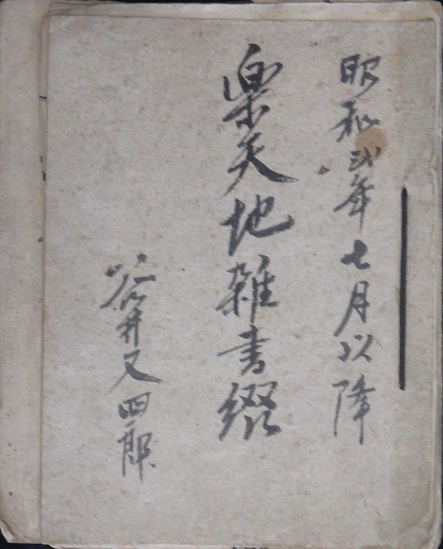 昭和弐年七月以降
楽天地雑書綴
谷井又四郎